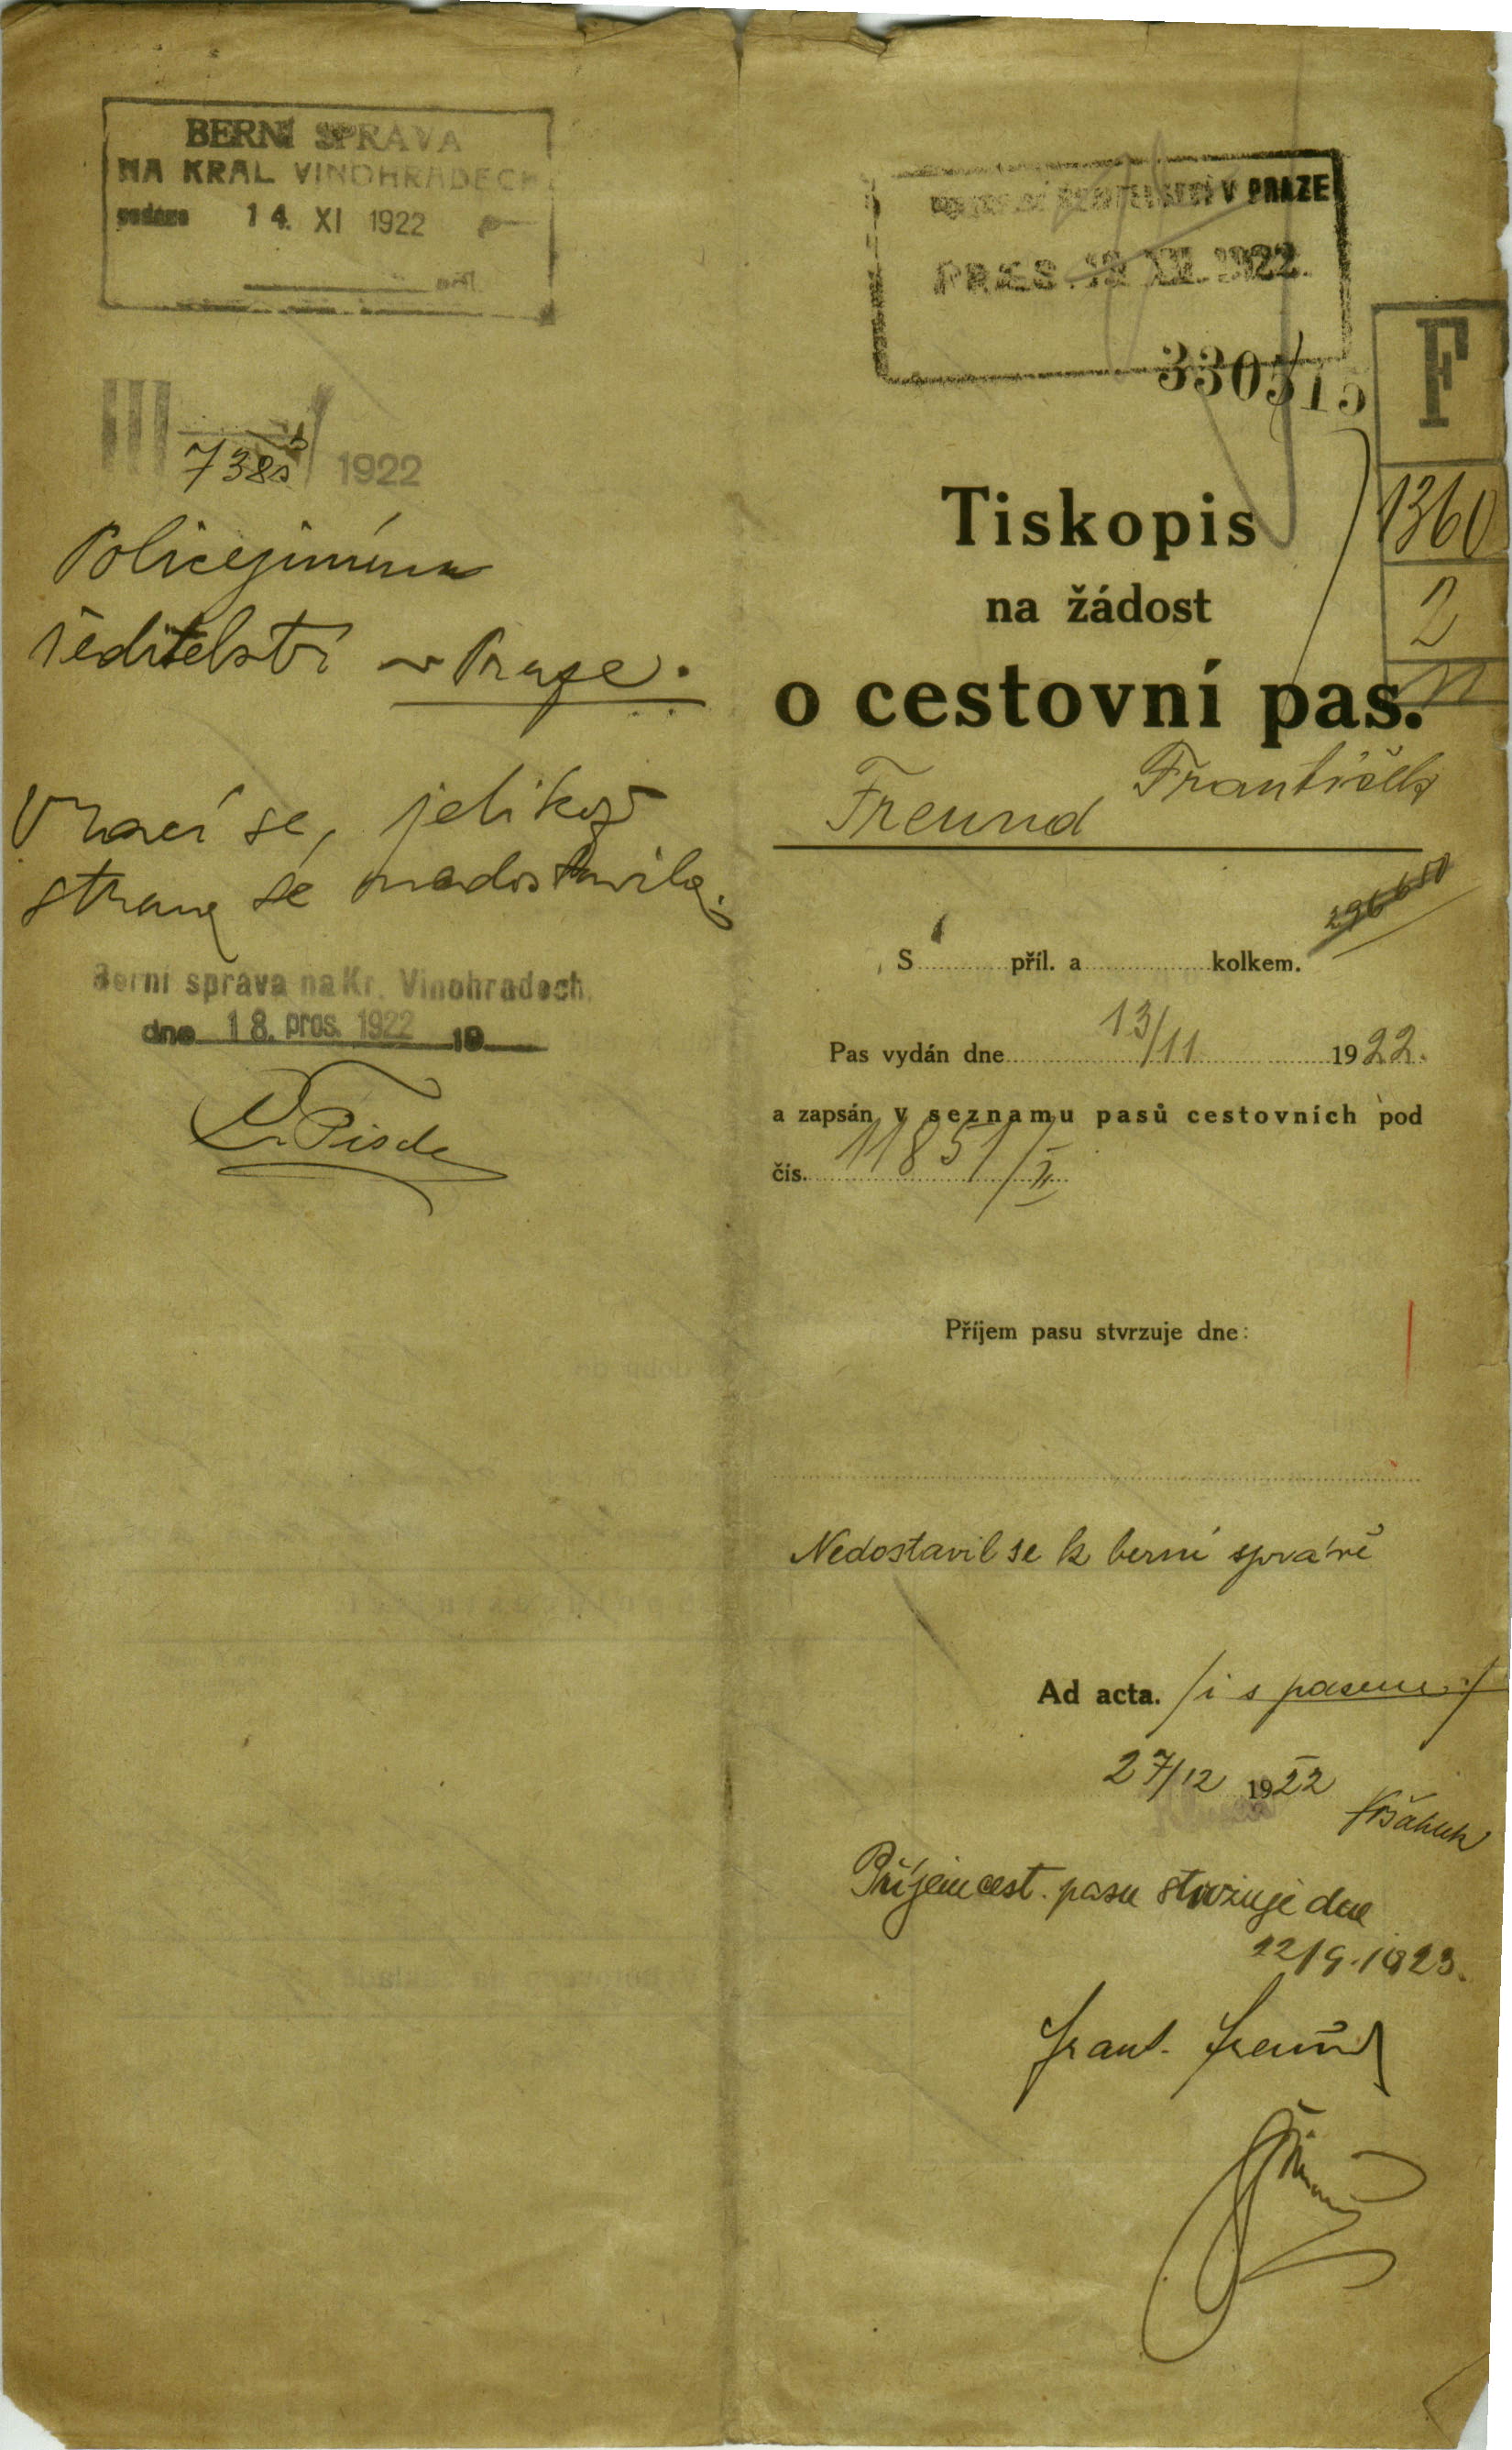 BERNÍ SPRÁVA
NA KRÁL. VINOHRADECH
podáno 14. XI 1922
III 1922
Policejnímu
ředitelství v Praze.
Vrací se, jelikož
strana se nedostavila.
Berní správa na Kr. Vinohradech.
dne 18. pros. 1922 19
V PRAZE
PRAES. XII. 1922
330515
F
1360
2
Tiskopis
na žádost
o cestovní pas.
Freund František
S 1 příl. a kolkem.
Pas vydán dne 13/11 1922.
a zapsán v seznamu pasů cestovních pod
čís. 11851/II
Příjem pasu stvrzuje dne:
Nedostavil se k berní správě
Ad acta. /i s pasem./
27/12 1922
Příjem cest. pasu stvrzuje dne
22/9. 1923.
Frant. Freund